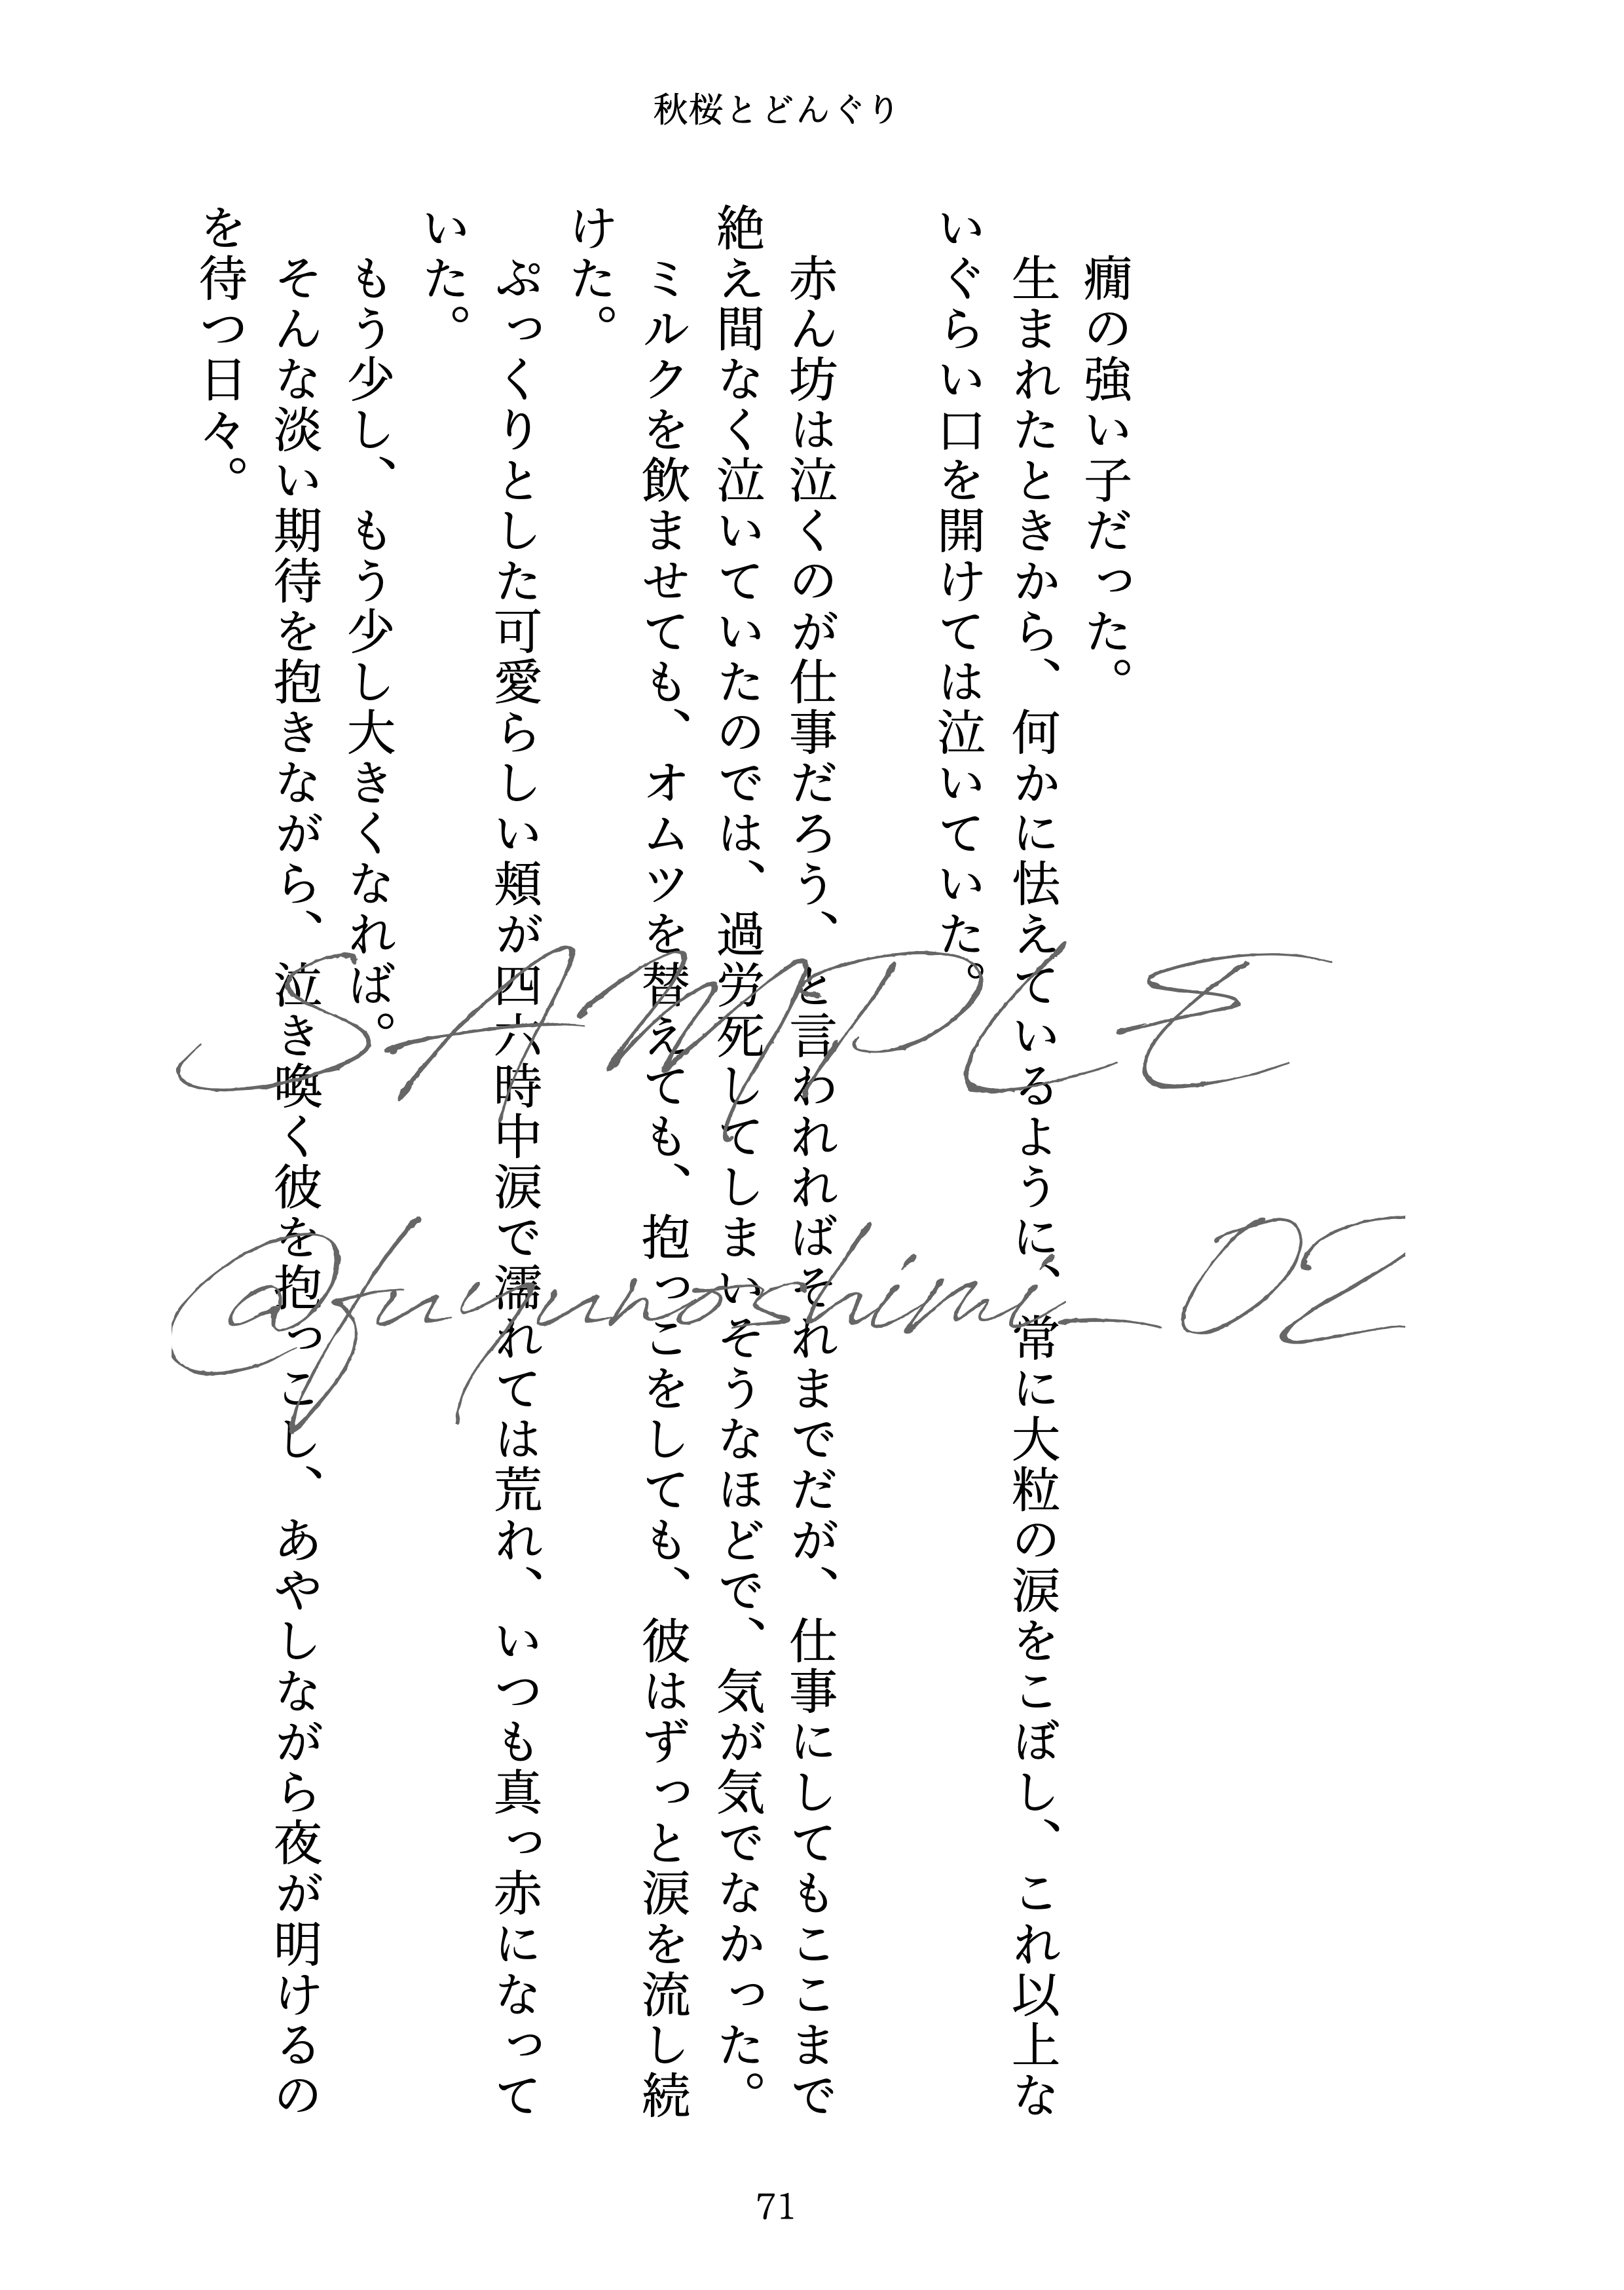 秋桜とどんぐり
癇の強い子だった。
生まれたときから、何かに怯えているように、常に大粒の涙をこぼし、これ以上な
いぐらい口を開けては泣いていた。
赤ん坊は泣くのが仕事だろう、と言われればそれまでだが、仕事にしてもここまで
絶え間なく泣いていたのでは、過労死してしまいそうなほどで、気が気でなかった。
ミルクを飲ませても、オムツを替えても、抱っこをしても、彼はずっと涙を流し続
けた。
ぷっくりとした可愛らしい頬が四六時中涙で濡れては荒れ、いつも真っ赤になって
いた。
もう少し、もう少し大きくなれば。
そんな淡い期待を抱きながら、泣き喚く彼を抱っこし、あやしながら夜が明けるの
を待つ日々。
SAMPLE
@fuyunoshimi_02
71